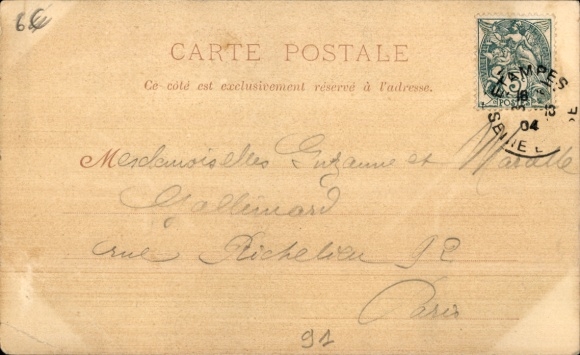 6
CARTE POSTALE
Ce côté est exclusivement réservé à l'adresse.
5
POSTES
ETAMPES
18
04
SEINE
Mesdemoiselles Suzanne et
Gallimard
rue Richelieu 92
Paris
91